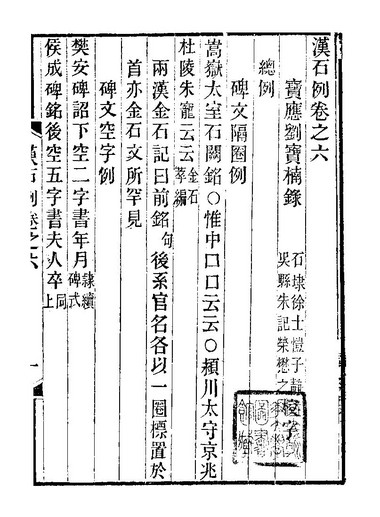 漢石例卷之六
寶應劉寶楠錄
石埭徐士愷子靜
吳縣朱記榮懋之
校字
總例
碑文隔圈例
嵩嶽太室石闕銘〇惟中口口云云〇潁川太守京兆
杜陵朱寵云云金石萃編
兩漢金石記曰前銘句後系官名各以一圈標置於
首亦金石文所罕見
碑文空字例
樊安碑詔下空二字書年月隸續碑式
侯成碑銘後空五字書夫人卒同上
漢石例卷之六
一